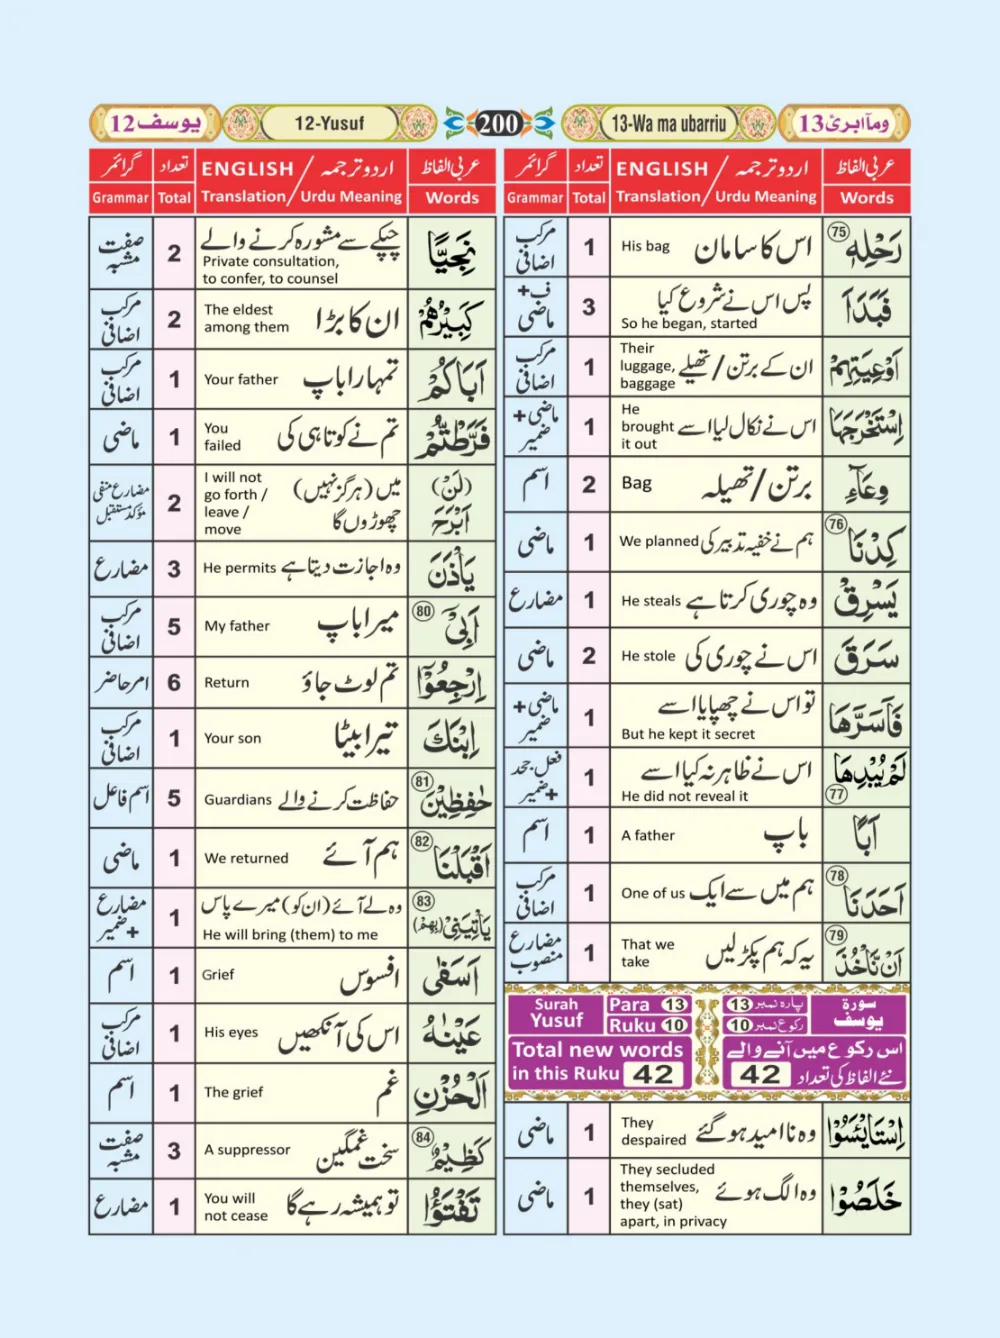 وما ابرئ 13
13-Wa ma ubarriu
200
12-Yusuf
يوسف 12
عربی الفاظ اردو ترجمہ / ENGLISH تعداد گرائمر
Words Urdu Meaning / Translation Total Grammar
رَحْلِهٖ 75 اس کا سامان His bag 1 مرکب اضافی
فَبَدَاَ پس اس نے شروع کیا 3 ف+ ماضی
So he began, started
اَوْعِيَتِهِمْ ان کے برتن/تھیلے Their luggage, baggage 1 مرکب اضافی
اِسْتَخْرَجَهَا اس نے نکال لیا اسے He brought it out 1 ماضی+ ضمیر
وِعَآءِ برتن/تھیلہ Bag 2 اسم
كِدْنَا 76 ہم نے خفیہ تدبیر کی We planned 1 ماضی
يَسْرِقْ وہ چوری کرتا ہے He steals 1 مضارع
سَرَقَ اس نے چوری کی He stole 2 ماضی
فَاَسَرَّهَا تو اس نے چھپایا اسے 1 ماضی+ ضمیر
But he kept it secret
لَمْ يُبْدِهَا 77 اس نے ظاہر نہ کیا اسے 1 فعل جحد +ضمیر
He did not reveal it
اَبًا باپ A father 1 اسم
اَحَدَنَا 78 ہم میں سے ایک One of us 1 مرکب اضافی
اَنْ نَّاْخُذَ 79 یہ کہ ہم پکڑ لیں That we take 1 مضارع منصوب
Surah Yusuf Para 13 پارہ نمبر 13 سورة يوسف
Ruku 10 رکوع نمبر 10
Total new words in this Ruku 42
اس رکوع میں آنے والے نئے الفاظ کی تعداد 42
اِسْتَايْـَٔسُوْا وہ ناامید ہو گئے They despaired 1 ماضی
خَلَصُوْا وہ الگ ہوئے They secluded themselves, they (sat) apart, in privacy 1 ماضی
عربی الفاظ اردو ترجمہ / ENGLISH تعداد گرائمر
Words Urdu Meaning / Translation Total Grammar
نَجِيًّا چپکے سے مشورہ کرنے والے 2 صفت مشبہ
Private consultation, to confer, to counsel
كَبِيْرُهُمْ ان کا بڑا The eldest among them 2 مرکب اضافی
اَبَاكُمْ تمہارا باپ Your father 1 مرکب اضافی
فَرَّطْتُّمْ تم نے کوتاہی کی You failed 1 ماضی
(لَنْ) اَبْرَحَ میں (ہرگز نہیں) چھوڑوں گا I will not go forth / leave / move 2 مضارع منفی مؤکد مستقبل
يَاْذَنَ وہ اجازت دیتا ہے He permits 3 مضارع
اَبِىْٓ 80 میرا باپ My father 5 مرکب اضافی
اِرْجِعُوْٓا تم لوٹ جاؤ Return 6 امر حاضر
اِبْنَكَ تیرا بیٹا Your son 1 مرکب اضافی
حٰفِظِيْنَ 81 حفاظت کرنے والے Guardians 5 اسم فاعل
اَقْبَلْنَا 82 ہم آئے We returned 1 ماضی
يَاْتِيَنِىْ (بِهِمْ) 83 وہ لے آئے (ان کو) میرے پاس 1 مضارع +ضمیر
He will bring (them) to me
اَسَفٰى افسوس Grief 1 اسم
عَيْنٰهُ اس کی آنکھیں His eyes 1 مرکب اضافی
اَلْحُزْنِ غم The grief 1 اسم
كَظِيْمٌ 84 سخت غمگین A suppressor 3 صفت مشبہ
تَفْتَؤُا تو ہمیشہ رہے گا You will not cease 1 مضارع